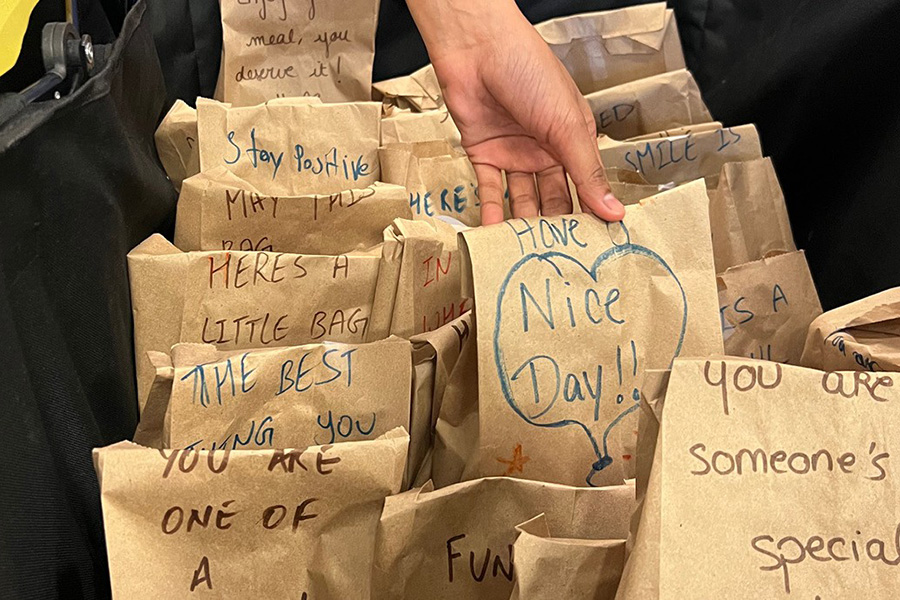 Enjoy
meal, you
deserve it!
Stay Positive
MAY THIS
BAG
HERE'S
SMILE IS
HERES A
LITTLE BAG
IN
Have a
Nice
Day!!
IS A
THE BEST
THING YOU
YOU ARE
ONE OF
A
FUN
YOU ARE
someone's
special